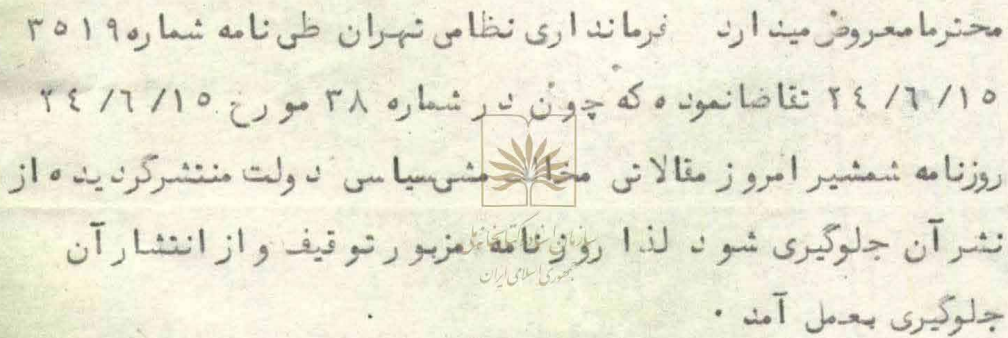 محترما معروض میدارد فرمانداری نظامی تهران طی نامه شماره ۳۵۱۹
۲۴/۶/۱۵ تقاضا نموده که چون در شماره ۳۸ مورخ ۲۴/۶/۱۵
روزنامه شمشیر امروز مقالاتی مخالف مشی سیاسی دولت منتشر گردیده از
نشر آن جلوگیری شود لذا روزنامه مزبور توقیف و از انتشار آن
جلوگیری بعمل آمد .
سازمان اسناد و کتابخانه ملی
جمهوری اسلامی ایران